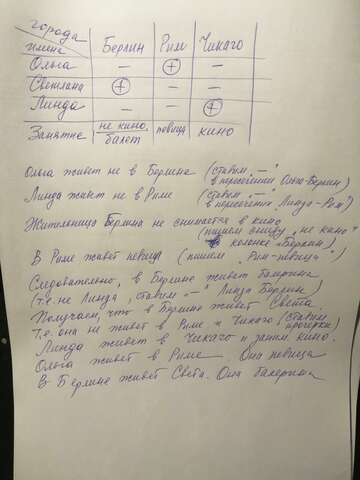 города
имена Берлин Рим Чикаго
Ольга — + —
Светлана + — —
Линда — — +
Занятие не кино. балет певица кино
Ольга живёт не в Берлине (ставим „—"
в пересечении Ольга-Берлин)
Линда живёт не в Риме (ставим „—"
в пересечении „Линда-Рим")
Жительница Берлина не снимается в кино
(пишем внизу „не кино"
в колонке „Берлин)
В Риме живёт певица (пишем „Рим-певица")
Следовательно, в Берлине живёт балерина
(т.е. не Линда, ставим „—" Линда Берлин)
Получаем, что в Берлине живёт Света
Т.е. она не живёт в Риме и Чикаго (ставим
прочерки)
Линда живёт в Чикаго и заним. кино.
Ольга живёт в Риме. Она певица
В Берлине живёт Света. Она балерина